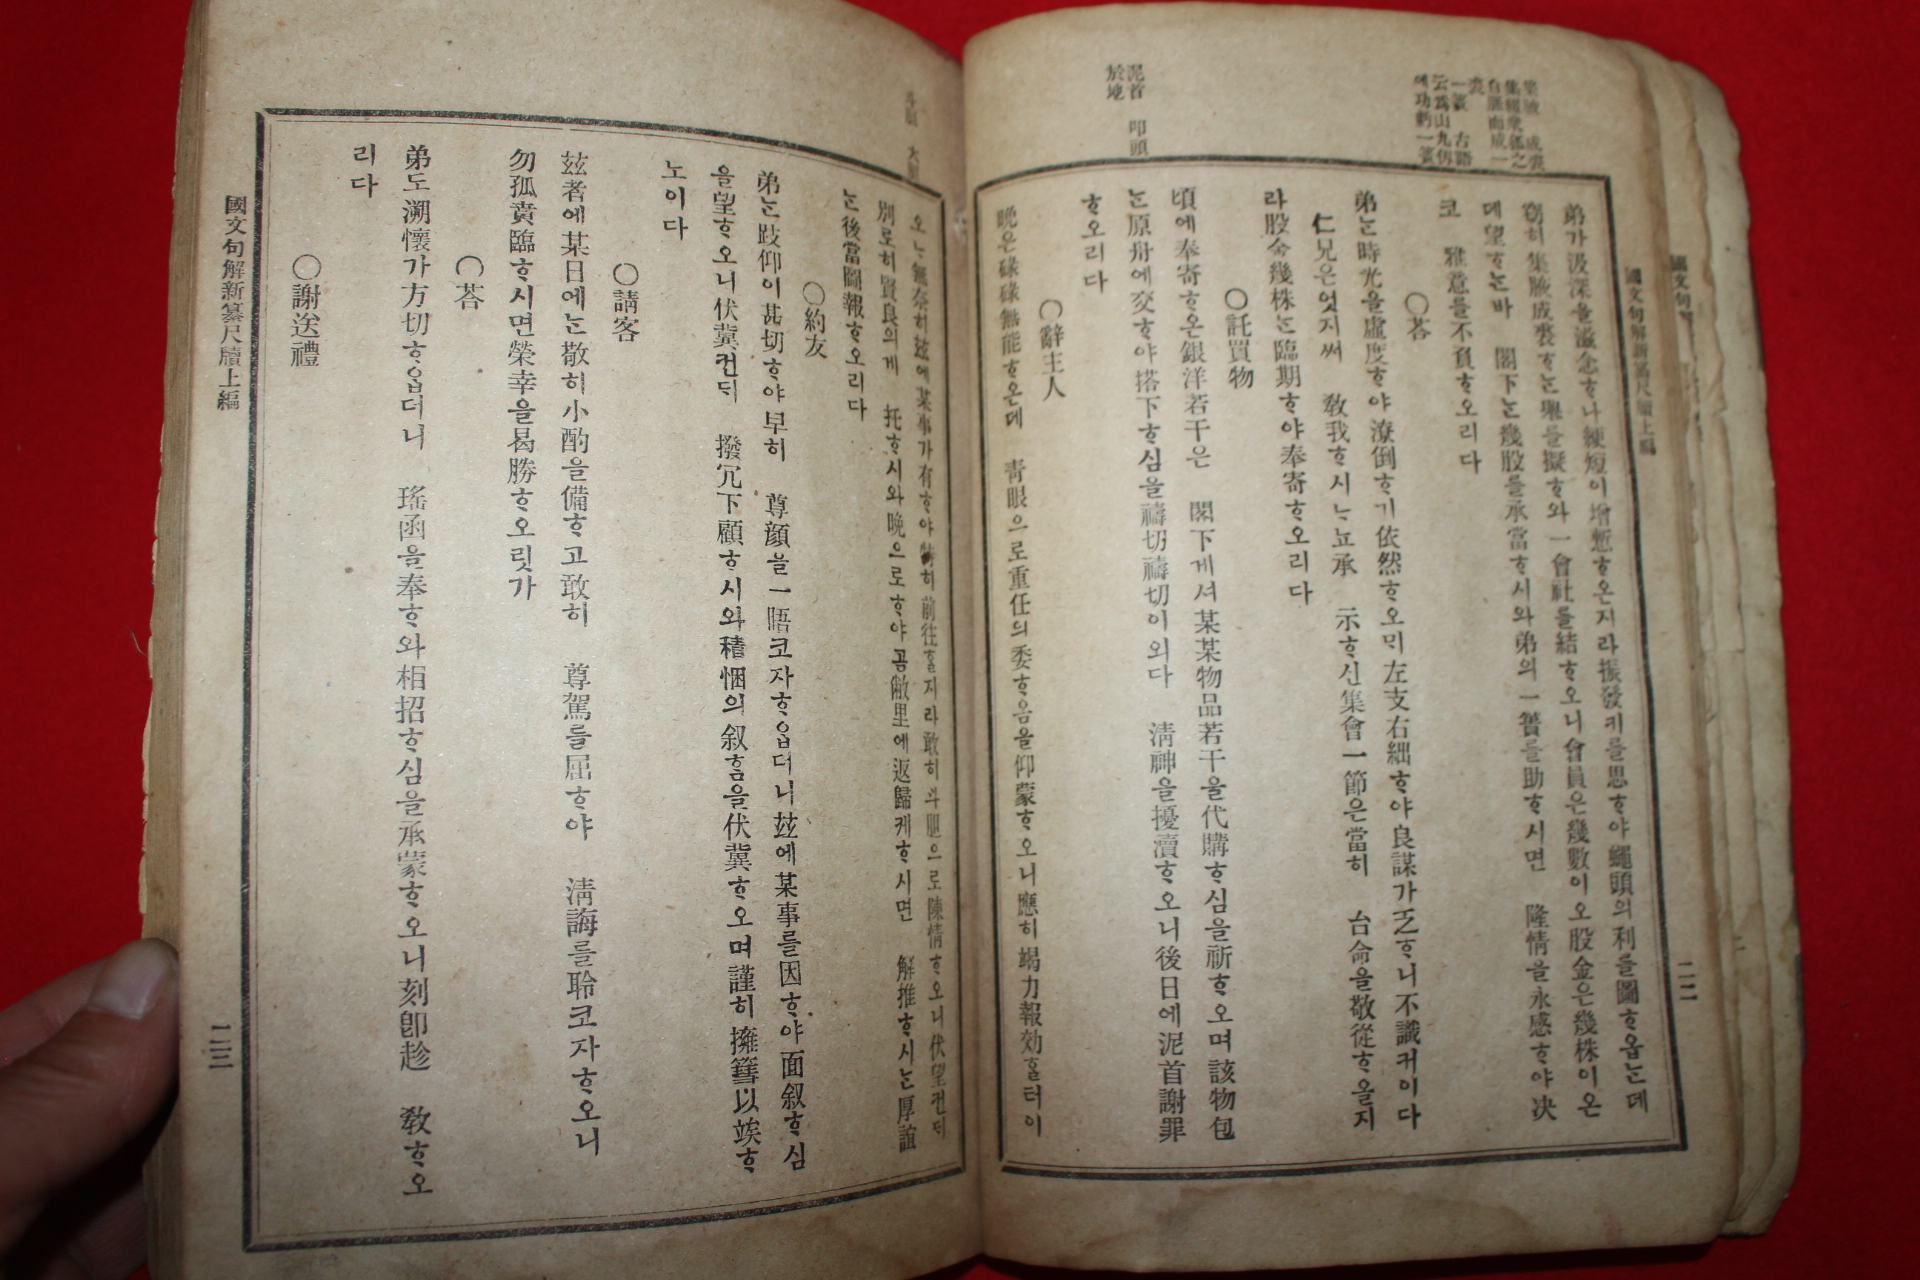 國文句解新纂尺牘上編
二二
弟가汲深을滋念ᄒᆞ나綆短이增慙ᄒᆞ온지라振發키를思ᄒᆞ야蠅頭의利를圖ᄒᆞ옵ᄂᆞᆫ데
竊히集腋成裘ᄒᆞᄂᆞᆫ擧를擬ᄒᆞ와一會社를結ᄒᆞ오니會員은幾數이오股金은幾株이온
데望ᄒᆞᄂᆞᆫ바 閣下ᄂᆞᆫ幾股를承當ᄒᆞ시와弟의一簣를助ᄒᆞ시면 隆情을永感ᄒᆞ야决
코 雅意를不負ᄒᆞ오리다
○荅
弟ᄂᆞᆫ時光을虛度ᄒᆞ야潦倒ᄒᆞ기依然ᄒᆞ오ᄆᆡ左支右絀ᄒᆞ야良謀가乏ᄒᆞ니不識커이다
仁兄은엇지써 敎我ᄒᆞ시ᄂᆞ뇨承 示ᄒᆞ신集會一節은當히 台命을敬從ᄒᆞ올지
라股金幾株ᄂᆞᆫ臨期ᄒᆞ야奉寄ᄒᆞ오리다
○託買物
頃에奉寄ᄒᆞ온銀洋若干은 閣下게셔某某物品若干을代購ᄒᆞ심을祈ᄒᆞ오며該物包
ᄂᆞᆫ原舟에交ᄒᆞ야搭下ᄒᆞ심을禱切禱切이외다 淸神을擾瀆ᄒᆞ오니後日에泥首謝罪
ᄒᆞ오리다
○辭主人
晩은碌碌無能ᄒᆞ온데 靑眼으로重任의委ᄒᆞ음을仰蒙ᄒᆞ오니應히竭力報効ᄒᆞᆯ터이
集腋 成裘
集狐衆都之
白腋而成一
裘
一簣 古語
云爲山九仞
에功虧一簣
泥首 叩頭
於地
오ᄂᆞᆫ無奈히玆에某事가有ᄒᆞ야特히前往ᄒᆞᆯ지라敢히斗膽으로陳情ᄒᆞ오니伏望컨ᄃᆡ
別로히賢良의게 托ᄒᆞ시와晩으로ᄒᆞ야곰敝里에返歸케ᄒᆞ시면 解推ᄒᆞ시ᄂᆞᆫ厚誼
ᄂᆞᆫ後當圖報ᄒᆞ오리다
○約友
弟ᄂᆞᆫ跂仰이甚切ᄒᆞ야早히 尊顔을一晤코자ᄒᆞ옵더니玆에某事를因ᄒᆞ야面叙ᄒᆞ심
을望ᄒᆞ오니伏冀컨ᄃᆡ 撥冗下顧ᄒᆞ시와積悃의叙ᄒᆞᆷ을伏冀ᄒᆞ오며謹히擁篲以竢ᄒᆞ
노이다
○請客
玆者에某日에ᄂᆞᆫ敬히小酌을備ᄒᆞ고敢히 尊駕를屈ᄒᆞ야 淸誨를聆코자ᄒᆞ오니
勿孤賁臨ᄒᆞ시면榮幸을曷勝ᄒᆞ오릿가
○荅
弟도溯懷가方切ᄒᆞ옵더니 瑤函을奉ᄒᆞ와相招ᄒᆞ심을承蒙ᄒᆞ오니刻卽趁 敎ᄒᆞ오
리다
○謝送禮
國文句解新纂尺牘上編
二三